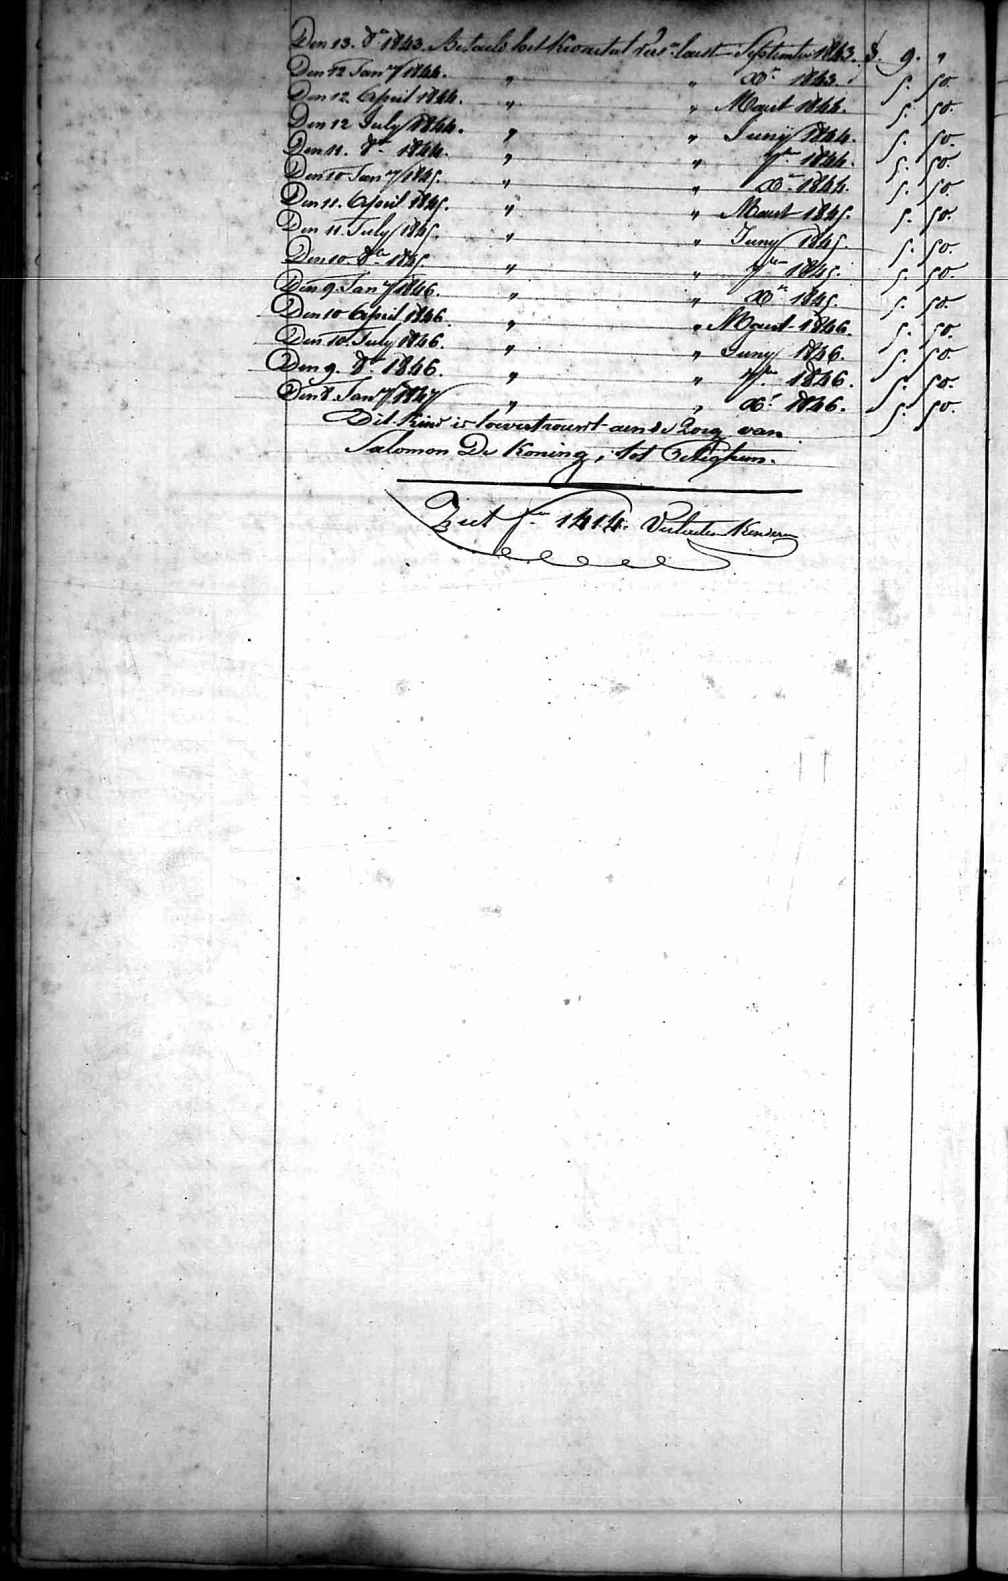 Den 13. 8re 1843. Betaeld het kwartal vers. laest September 1843. f. 9. "
Den 12 Jany 1844. " " Xre 1843. 5. 50.
Den 12 April 1844. " " Maert 1844. 5. 50.
Den 12 July 1844. " " Juny 1844. 5. 50.
Den 11. 8re 1844. " " 7re 1844. 5. 50.
Den 10 Jany 1845. " " Xre 1844. 5. 50.
Den 11. April 1845. " " Maert 1845. 5. 50.
Den 11. July 1845. " " Juny 1845. 5. 50.
Den 10. 8re 1845 " " 7re 1845. 5. 50.
Den 9. Jany 1846. " " Xre 1845. 5. 50.
Den 10 April 1846. " " Maert 1846 5. 50.
Den 10. July 1846. " " Juny 1846. 5. 50.
Den 9. 8re 1846. " " 7re 1846. 5. 50.
Den 8. Jany 1847 " " Xre 1846. 5. 50.
Dit kind is toevertrouwt aen de zorg van
Salomon De Koning, tot Ettighem.
Ziet fo 1414. Kinderen